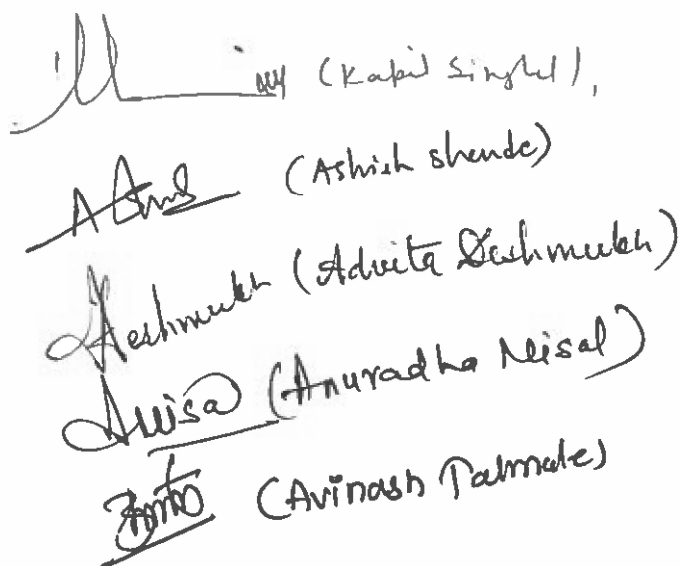 (Kapil Singhel),
(Ashish shende)
Deshmukh (Advita Deshmukh)
ANisal (Anuradha Nisal)
(Avinash Palmate)